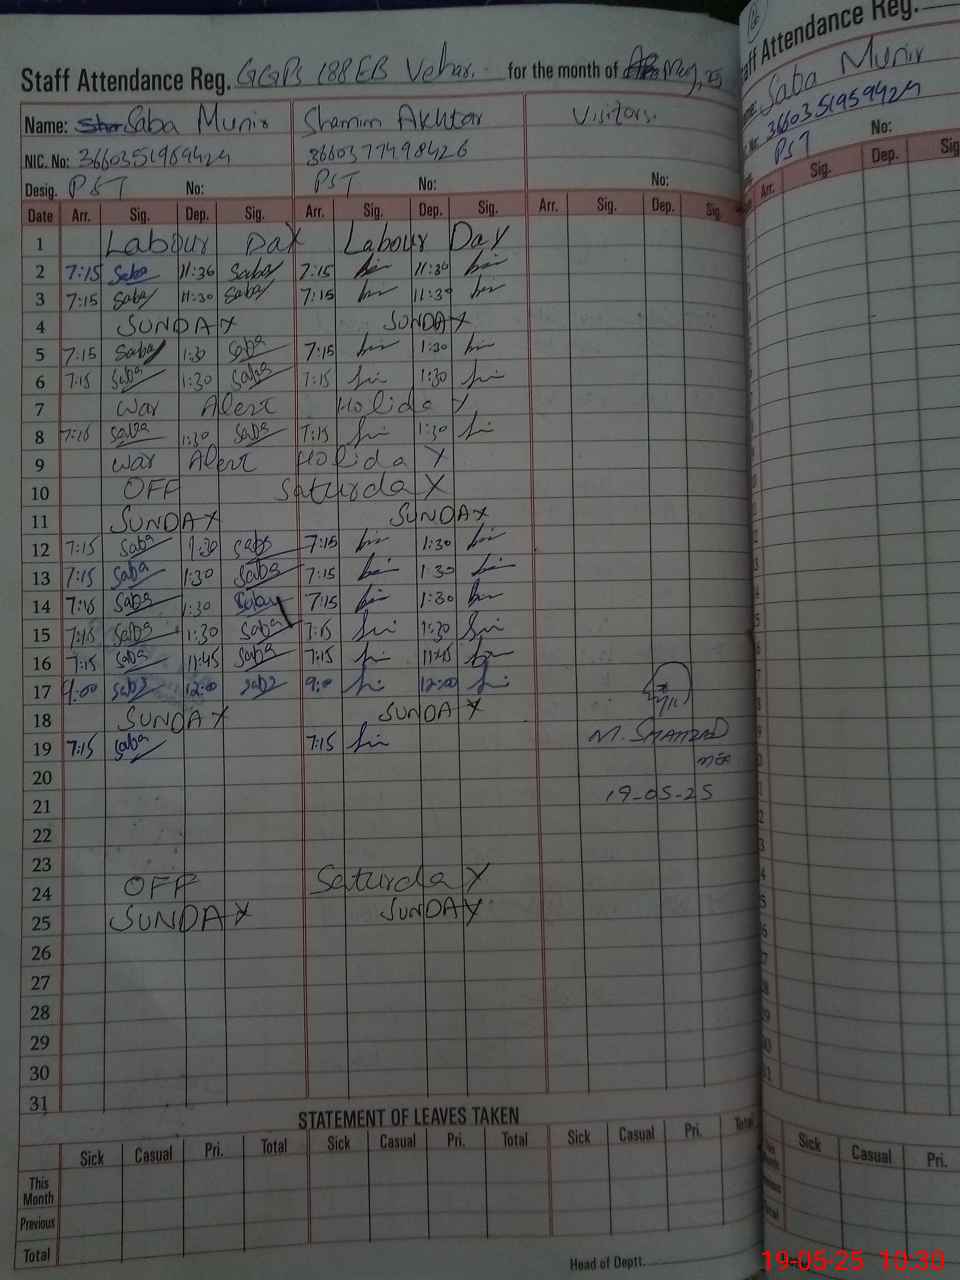 Staff Attendance Reg. GGPS 188EB Vehari. for the month of May, 25
Name: Saba Munir Shamim Akhtar Visitors.
NIC. No: 3660351959424 3660377498426
Desig. PST No: PST No: No:
Date Arr. Sig. Dep. Sig. Arr. Sig. Dep. Sig. Arr. Sig. Dep. Sig.
1 Labour Day Labour Day
2 7:15 Saba 11:30 Saba 7:15 11:30
3 7:15 Saba 11:30 Saba 7:15 11:30
4 SUNDAY SUNDAY
5 7:15 Saba 1:30 Saba 7:15 1:30
6 7:15 Saba 1:30 Saba 7:15 1:30
7 War Alert Holiday
8 7:15 Saba 1:30 Saba 7:15 1:30
9 War Alert Holiday
10 OFF Saturday
11 SUNDAY SUNDAY
12 7:15 Saba 1:30 Saba 7:15 1:30
13 7:15 Saba 1:30 Saba 7:15 1:30
14 7:15 Saba 1:30 Saba 7:15 1:30
15 7:15 Saba 1:30 Saba 7:15 1:30
16 7:15 Saba 11:45 Saba 7:15 11:45
17 9:00 Saba 12:00 Saba 9:00 12:00
18 SUNDAY SUNDAY
19 7:15 Saba 7:15 M. SHAHZAD
20 MEA
21 19-05-25
22
23
24 OFF Saturday
25 SUNDAY SUNDAY
26
27
28
29
30
31
STATEMENT OF LEAVES TAKEN
Sick Casual Pri. Total Sick Casual Pri. Total Sick Casual Pri. Total
This Month
Previous
Total
Head of Deptt.
Attendance Reg.
Saba Munir
3660351959424
No:
PST
Arr. Sig. Dep. Sig
Sick Casual Pri.
19-05-25 10:30